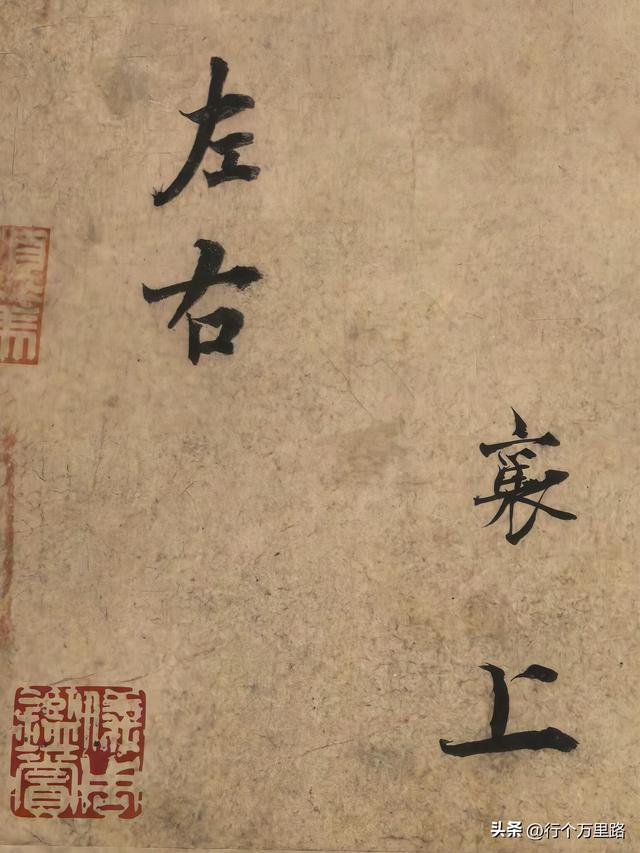 襄上
左右
头条 @行个万里路